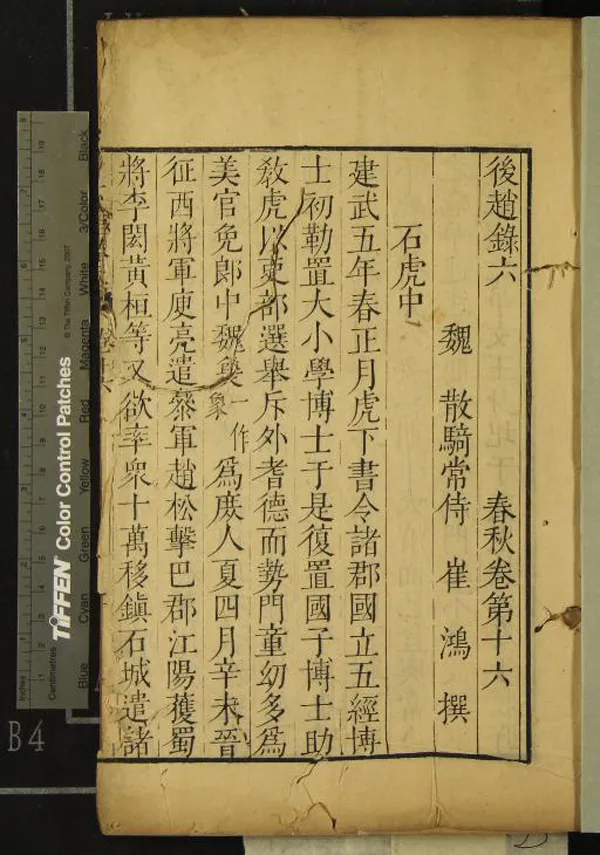 後趙錄六 春秋卷第十六
魏 散騎常侍 崔 鴻 撰
石虎中
建武五年春正月虎下書令諸郡國立五經博
士初勒置大小學博士于是復置國子博士助
敎虎以吏部選舉斥外耆德而勢門童幼多爲
美官免郎中魏㚟一作象爲庶人夏四月辛未晉
征西將軍庾亮遣叅軍趙松擊巴郡江陽獲蜀
將李閎黃桓等又欲率衆十萬移鎭石城遣諸
卷十六
Inches
Centimetres
TIFFEN Color Control Patches
© The Tiffen Company, 2007
Blue Cyan Green Yellow Red Magenta White 3/Color Black
B4